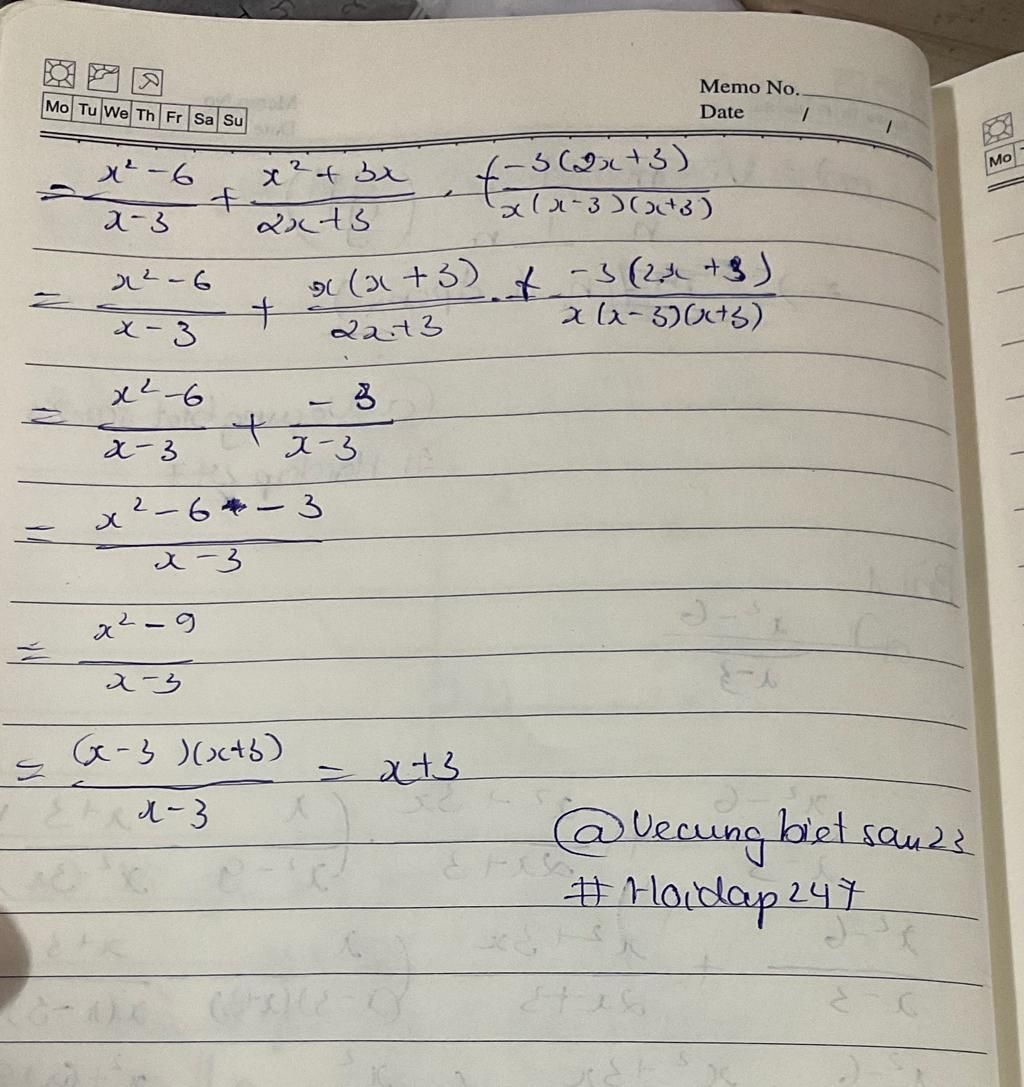 Mo Tu We Th Fr Sa Su
Memo No.
Date / /
Mo
= x² - 6 / x - 3 + x² + 3x / 2x + 3 . -3(2x + 3) / x(x - 3)(x + 3)
= x² - 6 / x - 3 + x(x + 3) / 2x + 3 . -3(2x + 3) / x(x - 3)(x + 3)
= x² - 6 / x - 3 + -3 / x - 3
= x² - 6 - 3 / x - 3
= x² - 9 / x - 3
= (x - 3)(x + 3) / x - 3 = x + 3
@Vecung biet sau23
# Hoidap247